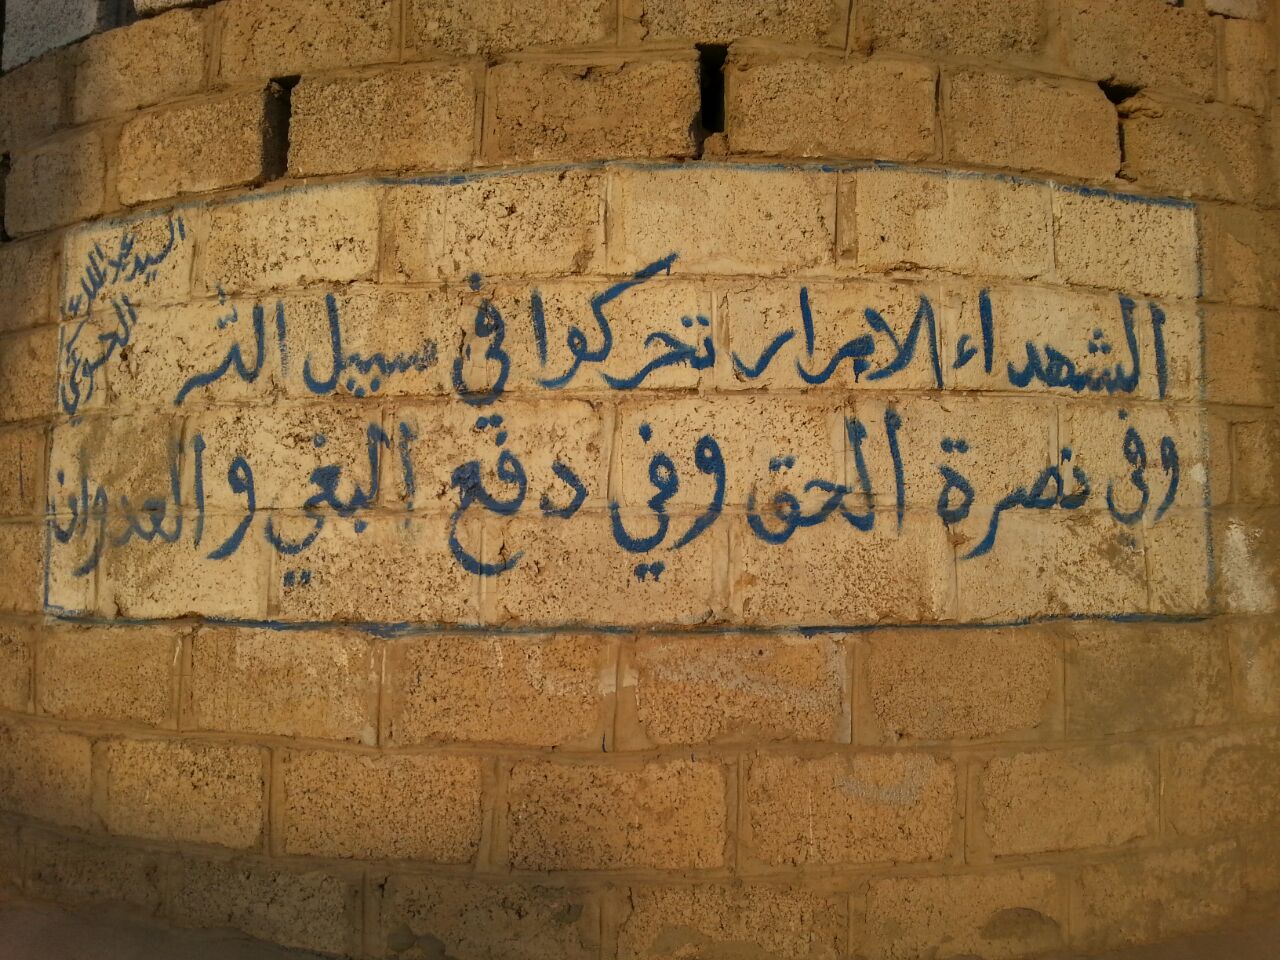 الشهداء الابرار تحركوا في سبيل الله
وفي نصرة الحق وفي دفع البغي والعدوان
السيد عبدالملك
الحوثي